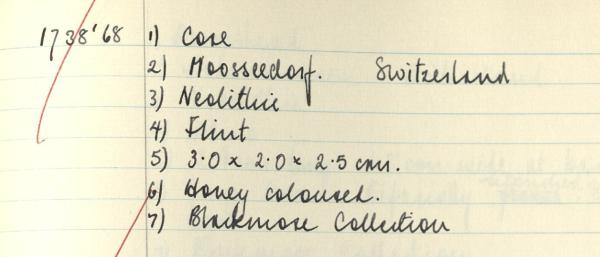 1738'68 1) Core
2) Moosseedorf. Switzerland
3) Neolithic
4) Flint
5) 3.0 x 2.0 x 2.5 cm.
6) Honey coloured.
7) Blackmore Collection